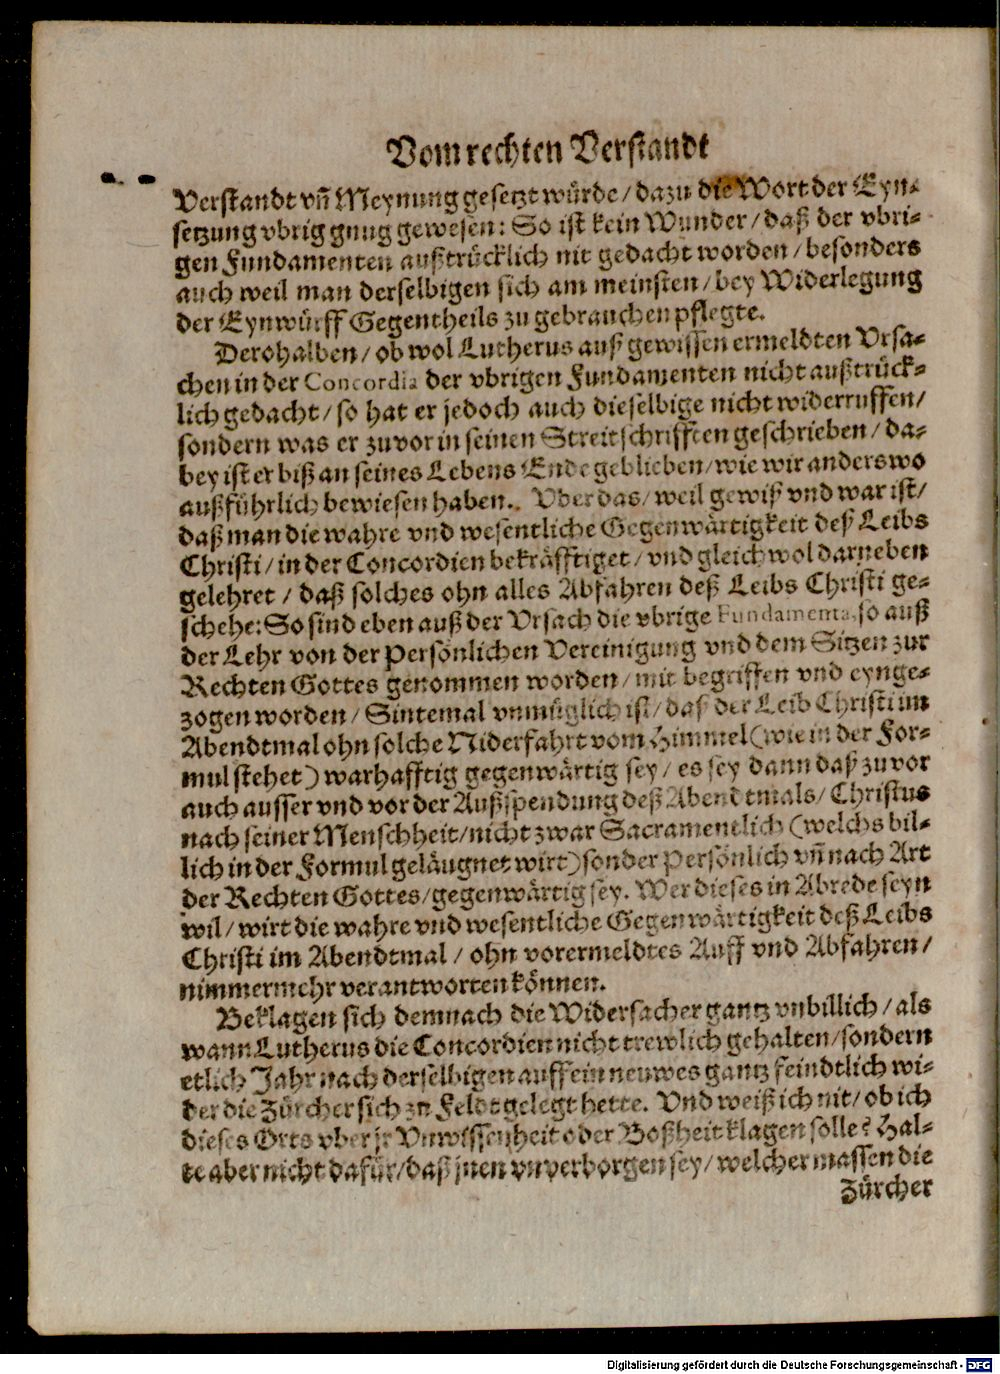 Vom rechten Verstandt
Verstandt vñ Meynung gesetzt würde / dazu die Wort der Eyn-
setzung vbrig gnug gewesen: So ist kein Wunder / daß der vbri-
gen Fundamenten außtrücklich nit gedacht worden / besonders
auch weil man derselbigen sich am meinsten / bey Widerlegung
der Eynwürff Gegentheils zu gebrauchen pflegte.
Derohalben / ob wol Lutherus auß gewissen ermeldten Vrsa-
chen in der Concordia der vbrigen Fundamenten nicht außtrück-
lich gedacht / so hat er jedoch auch dieselbige nicht widerruffen /
sondern was er zuvor in seinen Streitschrifften geschrieben / da-
bey ist er biß an seines Lebens Ende geblieben / wie wir anderswo
außführlich bewiesen haben. Vber das / weil gewiß vnd war ist /
daß man die wahre vnd wesentliche Gegenwärtigkeit deß Leibs
Christi / in der Concordien bekräfftiget / vnd gleichwol darneben
gelehret / daß solches ohn alles Abfahren deß Leibs Christi ge-
schehe: So sind eben auß der Vrsach die vbrige Fundamenta, so auß
der Lehr von der Persönlichen Vereinigung vnd dem Sitzen zur
Rechten Gottes genommen worden / mit begriffen vnd eynge-
zogen worden / Sintemal vnmüglich ist / daß der Leib Christi im
Abendtmal ohn solche Niderfahrt vom Himmel (wie in der For-
mul stehet) warhafftig gegenwärtig sey / es sey dann daß zuvor
auch ausser vnd vor der Außspendung deß Abendtmals / Christus
nach seiner Menschheit / nicht zwar Sacramentlich (welchs bil-
lich in der Formul geläugnet wirt) sonder Persönlich vñ nach Art
der Rechten Gottes / gegenwärtig sey. Wer dieses in Abrede seyn
wil / wirt die wahre vnd wesentliche Gegenwärtigkeit deß Leibs
Christi im Abendtmal / ohn vorermeldtes Auff vnd Abfahren /
nimmermehr verantworten können.
Beklagen sich demnach die Widersacher gantz vnbillich / als
wann Lutherus die Concordien nicht trewlich gehalten / sondern
etlich Jahr nach derselbigen auff ein neuwes gantz feindtlich wi-
der die Zürcher sich zu Feldt gelegt hette. Vnd weiß ich nit / ob ich
dieses Orts vber jr Vnwissenheit oder Boßheit klagen solle? Hal-
te aber nicht dafür / daß jnen vnverborgen sey / welcher massen die
Zürcher
Digitalisierung gefördert durch die Deutsche Forschungsgemeinschaft - DFG